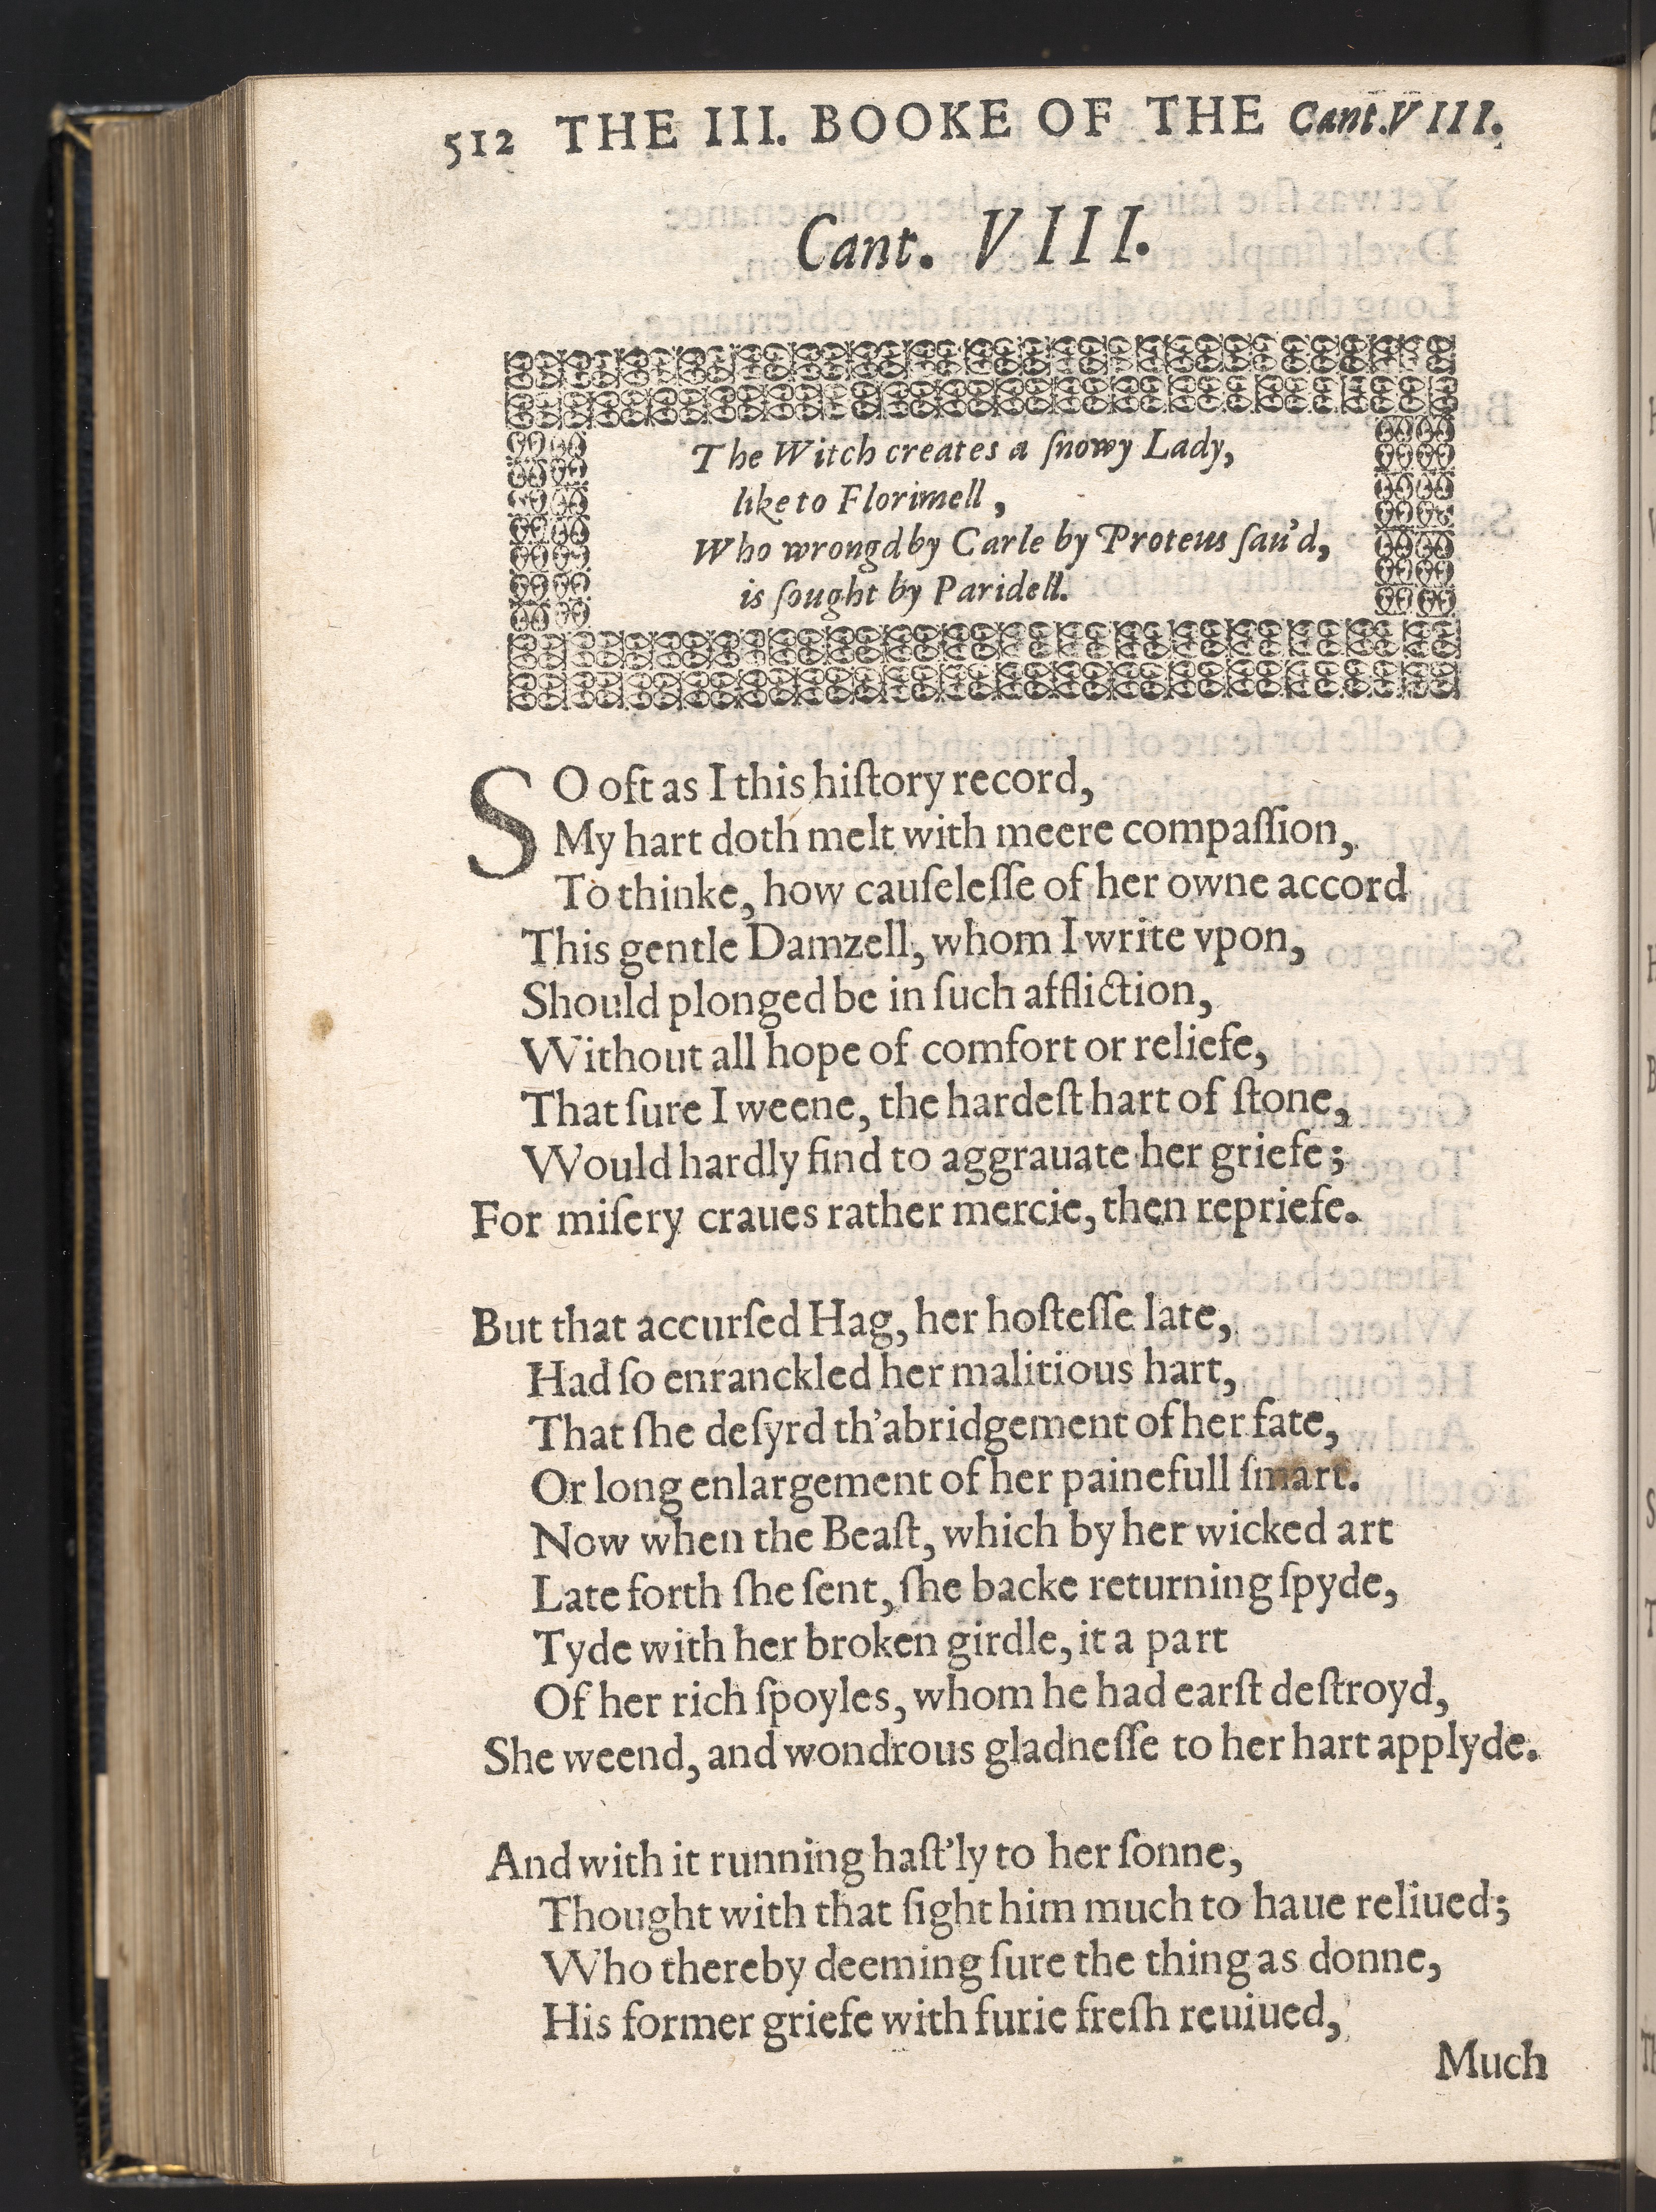 512 THE III. BOOKE OF THE Cant.VIII.
Cant. VIII.
The Witch creates a ſnowy Lady,
like to Florimell,
Who wrongd by Carle by Proteus ſau'd,
is ſought by Paridell.
SO oft as I this hiſtory record,
My hart doth melt with meere compaſſion,
To thinke, how cauſeleſſe of her owne accord
This gentle Damzell, whom I write vpon,
Should plonged be in ſuch affliction,
Without all hope of comfort or reliefe,
That ſure I weene, the hardeſt hart of ſtone,
Would hardly find to aggrauate her griefe;
For miſery craues rather mercie, then repriefe.
But that accurſed Hag, her hoſteſſe late,
Had ſo enranckled her malitious hart,
That ſhe deſyrd th'abridgement of her fate,
Or long enlargement of her painefull ſmart.
Now when the Beaſt, which by her wicked art
Late forth ſhe ſent, ſhe backe returning ſpyde,
Tyde with her broken girdle, it a part
Of her rich ſpoyles, whom he had earſt deſtroyd,
She weend, and wondrous gladneſſe to her hart applyde.
And with it running haſt'ly to her ſonne,
Thought with that ſight him much to haue reliued;
Who thereby deeming ſure the thing as donne,
His former griefe with furie freſh reuiued,
Much